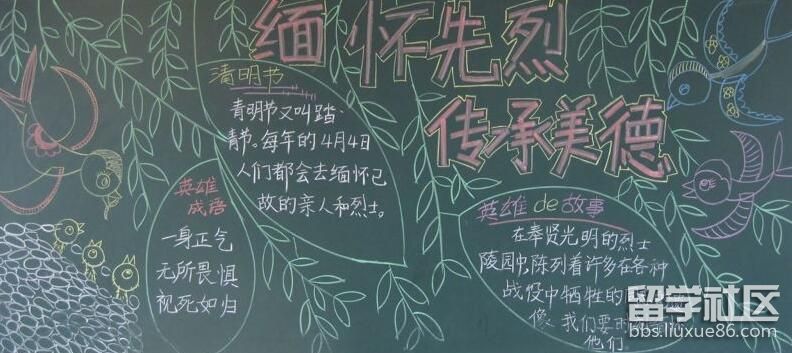 缅怀先烈
传承美德
清明节
青明节又叫踏
青节。每年的4月4日
人们都会去缅怀已
故的亲人和烈士。
英雄
成语
一身正气
无所畏惧
视死如归
英雄de故事
在奉贤光明的烈士
陵园中,陈列着许多在各种
战役中牺牲的
像 我们要
他们
留学社区
bbs.liuxue86.com